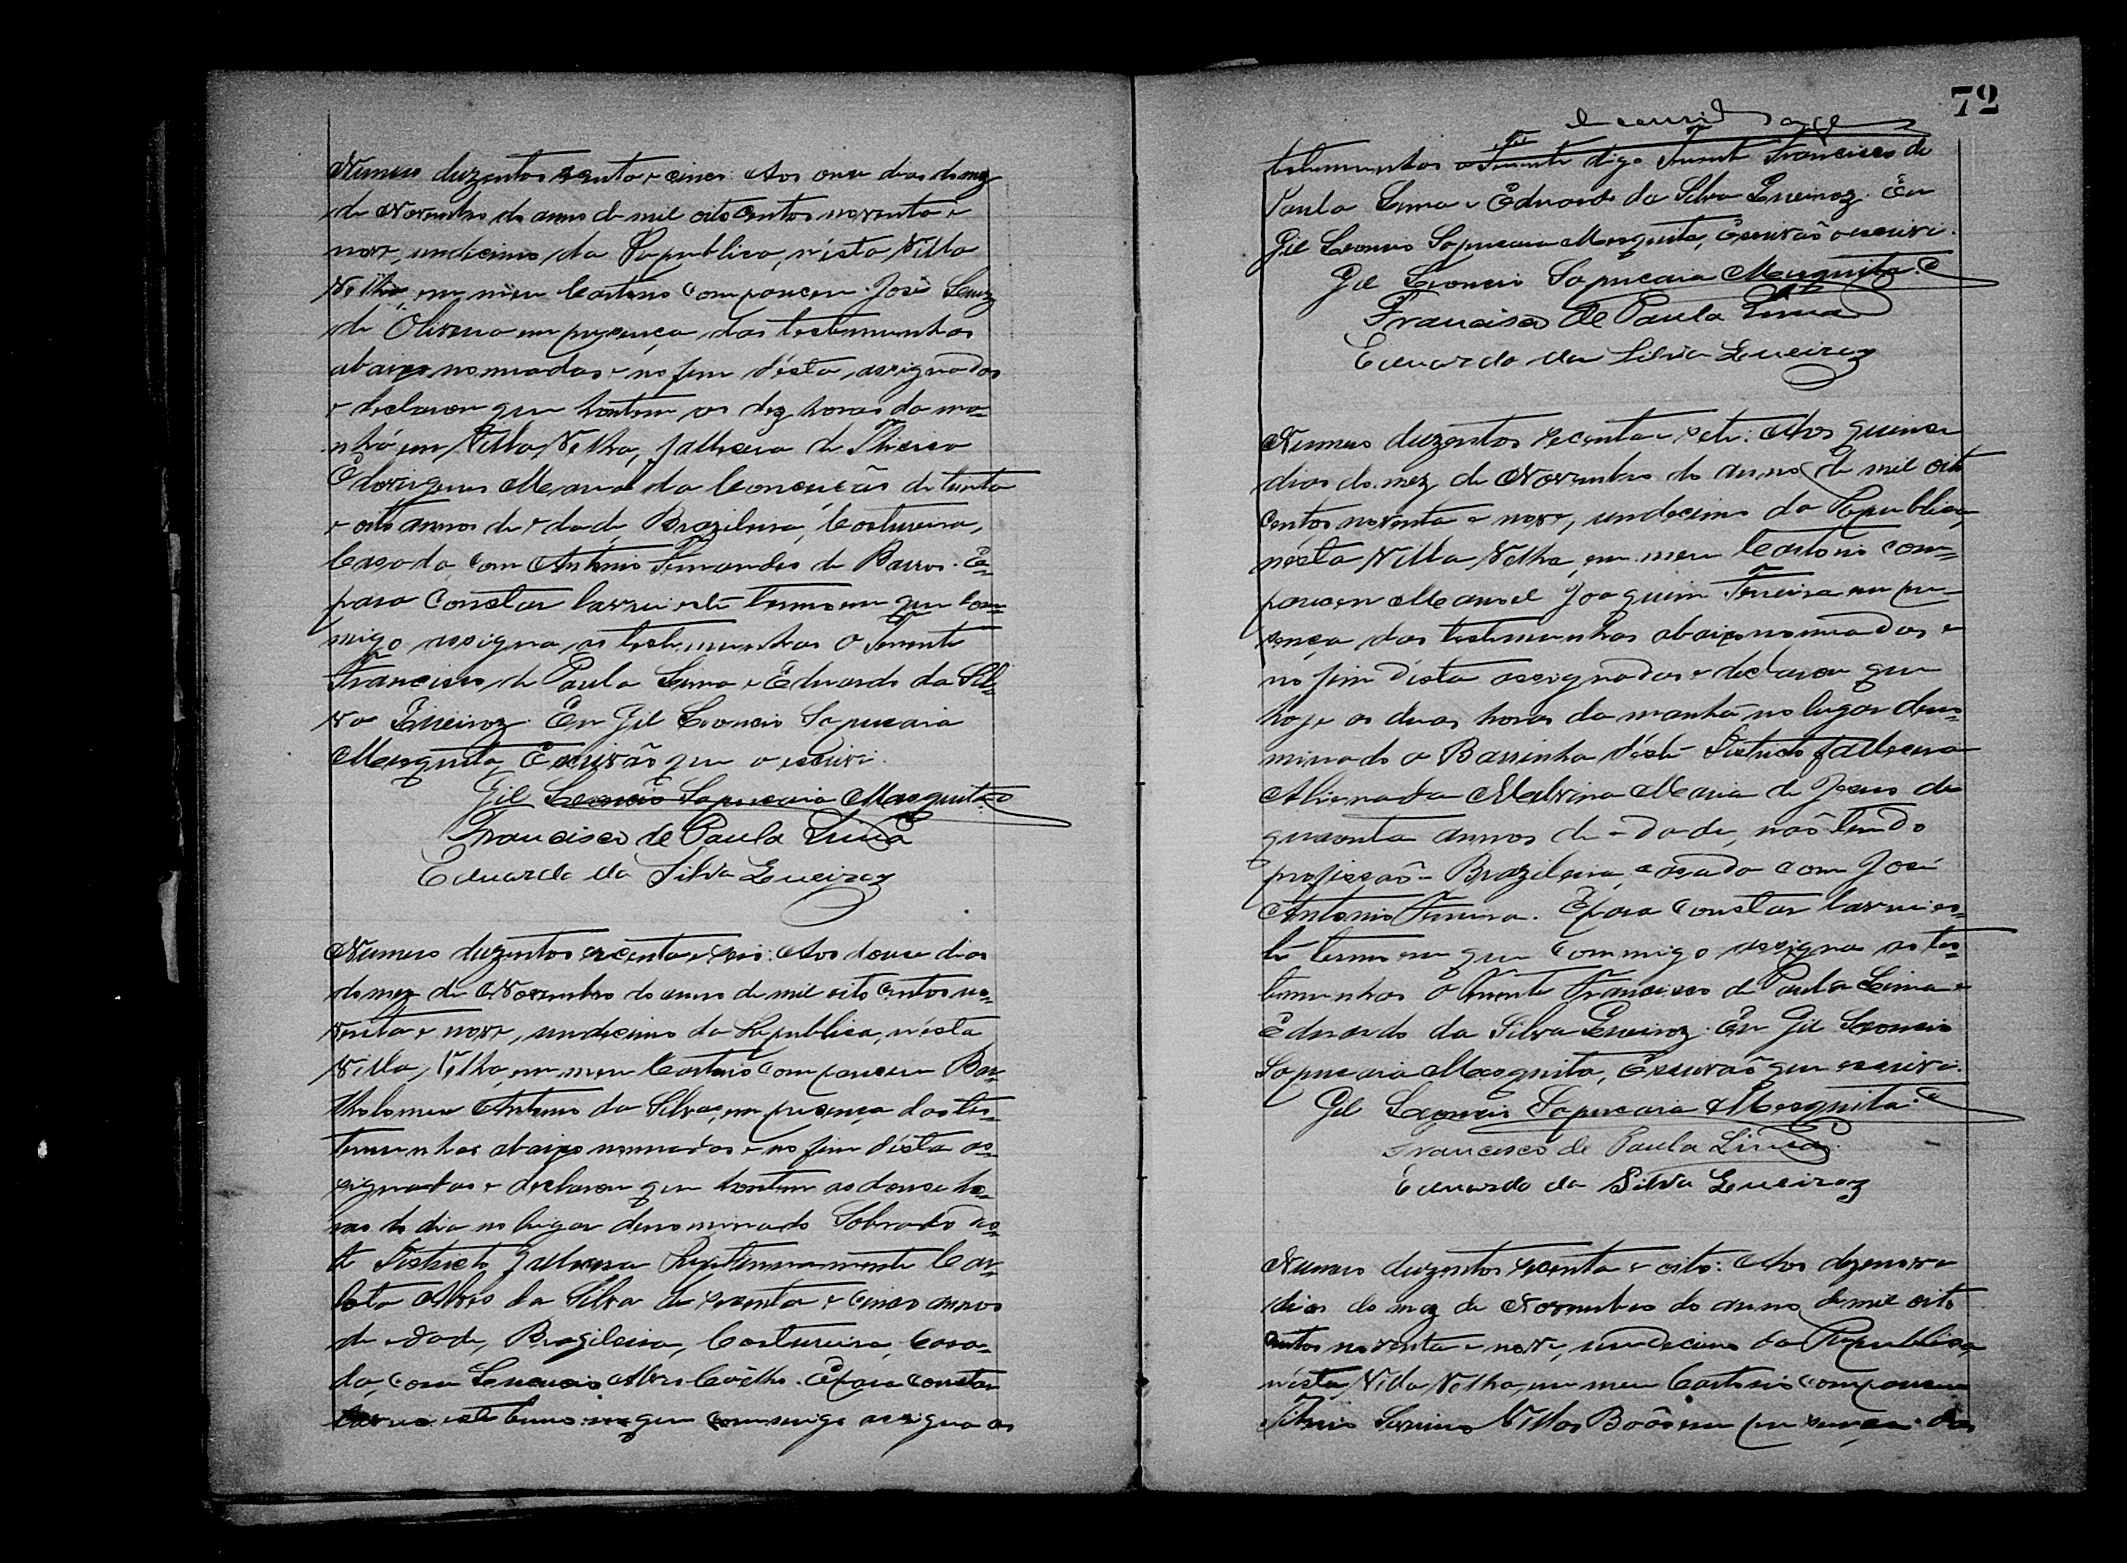 Numero duzentos secenta e cinco: Aos onze dias do mez
de Novembro do anno de mil oito centos noventa e
nove, undecimo da Republica, n'ésta Villa
Velha, em meu Cartorio compareceu José
de Oliveira em presença das testemunhas
abaixo nomeadas e no fim d'ésta assignados
e declarou que hontem as dez horas da ma-
nhã em Villa Velha, falleceu de
Maria da Conceição de trinta
e oito annos de edade, Brazileira, Costureira,
Casada com Antonio Fernandes de Barros. E
para constar lavrei este termo em que com-
migo assigna as testemunhas o Tenente
Francisco de Paula Lima e Eduardo da Sil-
va Queiroz. Eu Gil Leoncio Sapucaia
Mesquita, Escrivão que o escrivi.
Gil Leoncio Sapucaia Mesquita
Francisco de Paula Lima
Eduardo da Silva Queiroz
Numero duzentos secenta e seis: Aos douse dias
do mez de Novembro do anno de mil oito centos no-
venta e nove, undecimo da Republica, n'ésta
Villa Velha, em meu Cartorio compareceu Bar-
tholomeu Antonio da Silva, em presença das tes-
temunhas abaixo nomeadas e no fim d'ésta as-
signadas e declarou que hontem as douse ho-
ras do dia no lugar denominado Sobrado d'es-
te Districto falleceu repentinamente Car-
lota Alves da Silva de secenta e cinco annos
de edade, Brazileira, Costureira, Casa-
da, com Alves Coêlho. E para constar
lavrei este termo em que commigo assigna as
72
testemunhas o Tenente digo Tenente Francisco de
Paula Lima e Eduardo da Silva Queiroz. Eu
Gil Leoncio Sapucaia Mesquita, Escrivão o escrivi.
Gil Leoncio Sapucaia Mesquita
Francisco de Paula Lima
Eduardo da Silva Queiroz
Numero duzentos secenta e sete: Aos quinse
dias do mez de Novembro do anno de mil oito
centos noventa e nove, undecimo da Republica,
n'ésta Villa Velha, em meu Cartorio com-
pareceu Manoel Joaquim Ferreira em pre-
sença das testemunhas abaixo nomeadas e
no fim d'ésta assignadas e declarou que
hoje as duas horas da manhã no lugar deno-
minado a Barrinha d'éste Districto falleceu
Alienada Malvina Maria de Jesus de
quarenta annos de edade, não tendo
profissão Brazileira, casada com José
Antonio Ferreira. E para constar lavrei es-
te termo em que commigo assigna as tes-
temunhas o Tenente Francisco de Paula Lima e
Eduardo da Silva Queiroz. Eu Gil Leoncio
Sapucaia Mesquita, Escrivão que escrivi.
Gil Leoncio Sapucaia Mesquita
Francisco de Paula Lima
Eduardo da Silva Queiroz
Numero duzentos secenta e oito: Aos dezenove
dias do mez de Novembro do anno de mil oito
centos noventa e nove, undecimo da Republica,
n'ésta Villa Velha, em meu Cartorio compareceu
Villas Boôs em presença das